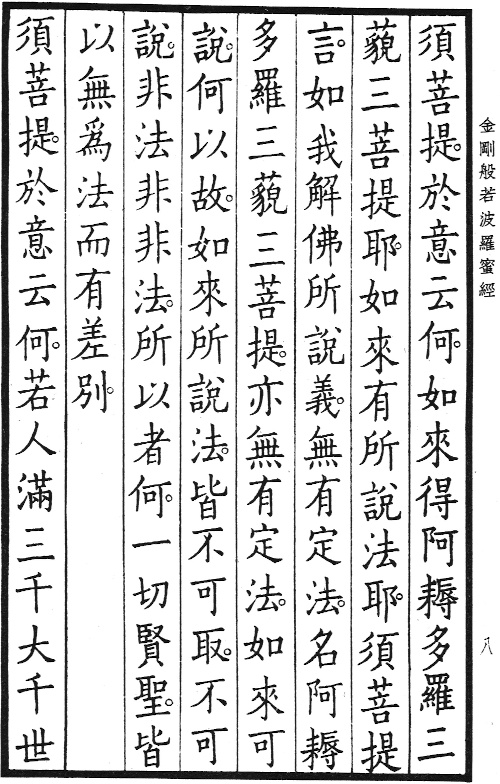 金剛般若波羅蜜經
八
須菩提。於意云何。如來得阿耨多羅三
藐三菩提耶。如來有所說法耶。須菩提
言。如我解佛所說義。無有定法。名阿耨
多羅三藐三菩提。亦無有定法。如來可
說。何以故。如來所說法。皆不可取。不可
說。非法非非法。所以者何。一切賢聖。皆
以無為法而有差別。
須菩提。於意云何。若人滿三千大千世